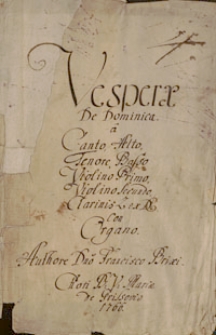 Vesperæ
De Dominica.
â
Canto, Alto,
Tenore, Basso
Violino Primo,
Violino Secundo
Clarinis
Con
Organo.
Authore Dno Francisco Brixi.
Chori B. V. Mariæ
De
1766.